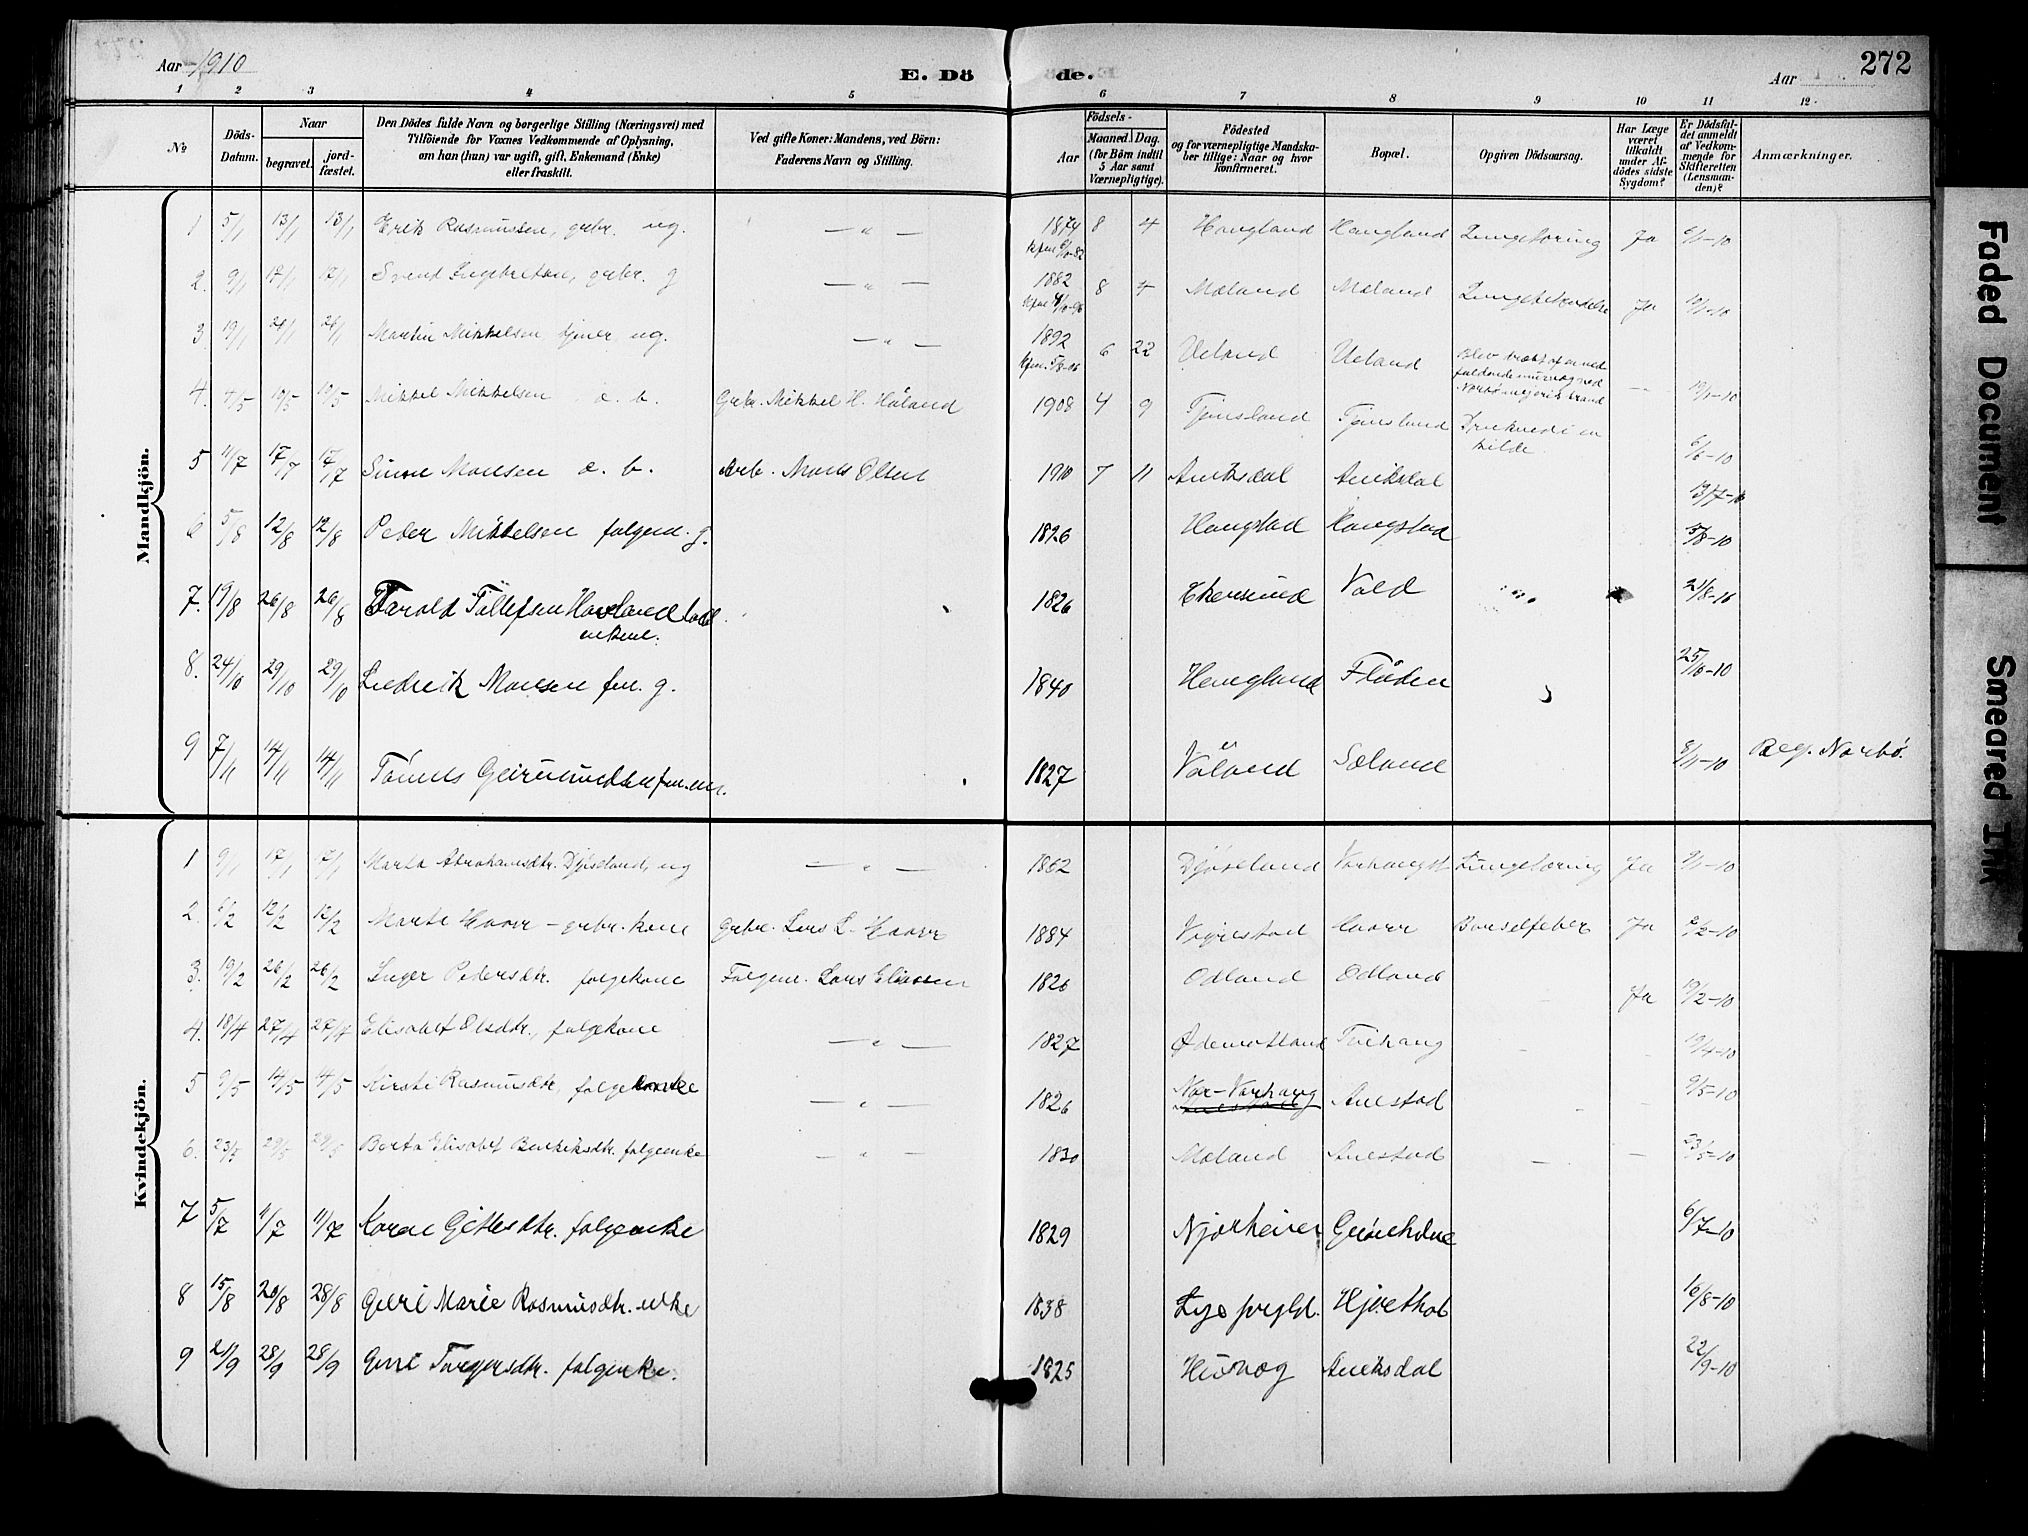 Aar 1910
E. Dö de.
Aar
272
1 2 3 4 5 6 7 8 9 10 11 12
No
Döds-Datum.
Naar
begravet.
jord-fæstet.
Den Dödes fulde Navn og borgerlige Stilling (Næringsvei) med
Tilföiende for Voxnes Vedkommende af Oplysning,
om han (hun) var ugift, gift, Enkemand (Enke)
eller fraskilt.
Ved gifte Koner: Mandens, ved Börn:
Faderens Navn og Stilling.
Födsels-
Aar
Maaned. Dag.
(for Börn indtil
5 Aar samt
Værnepligtige).
Födested
og for værnepligtige Mandska-
ber tillige: Naar og hvor
konfirmeret.
Bopæl.
Opgiven Dödsaarsag.
Har Læge
været
tilkaldt
under Af-
dödes sidste
Sygdom?
Er Dödsfal-
det anmeldt
af Vedkom-
mende for
Skifteretten
(Lensman-
den)?
Anmærkninger.
Mandkjön.
1 5/1 13/1 13/1 Erik Rasmussen, grbr. ug. — " — 1874 8 4 Haugland Haugland Lungetæring Ja
2. 9/1 17/1 17/1 Svend Ingebretsen, grbr. g — " — 1882 8 4 Mæland Mæland Ja
3. 19/1 26/1 26/1 Martin Mikkelsen tjener ug. — " — 1892 6 22 Ueland Ueland 19/1-10
4. 4/5 10/5 10/5 Mikkel Mikkelsen e. b. Grbr. Mikkel H. Håland 1908 4 9 Tjemsland Tjemsland Druknedi en kilde. 6/6-10
5 11/7 17/7 17/7 Simon Monsen e. b. Arb. Mons Olsen 1910 7 11 Aniksdal Aniksdal 13/7-10
6 5/8 12/8 12/8 Peder Mikkelsen folgem. g. 1826 Haugstad Haugstad 5/8-10
7. 19/8 26/8 26/8 Harald Tollefsen Hovland enkem. 1826 Ekersund Vold 21/8-10
8. 24/10 29/10 29/10 Fredrik Monsen fm. g. 1840 Haugland Flåden 25/10-10
9 7/11 14/11 14/11 Tönnes Geirmundsen fm. em. 1827 Våland Sæland 8/11-10 Beg. Nærbø.
Kvindekjön.
1 9/1 17/1 17/1 Marta Abrahamsdtr. Djuseland, ug — " — 1862 Djuseland Varhaugst Lungetæring Ja 9/1-10
2. 6/2 12/2 12/2 Marte Haarr - grbr. kone Grbr. Lars L. Haarr 1884 Vigrestad Haarr Barselfeber Ja
3. 19/2 26/2 26/2 Inger Pedersdtr. folgekone Folgem. Lars Eliassen 1826 Odland Odland Ja 19/2-10
4. 18/4 27/4 27/4 Elisabet Olsdtr., folgekone — " — 1827 Ødemotland Tuehaug — 19/4-10
5 9/5 14/5 14/5 Kirsti Rasmusdtr, folgeenke — " — 1826 Nor-Varhaug Auestad — — 9/5-10
6. 23/5 29/5 29/5 Berta Elisabet Bendiksdtr. folgeenke — " — 1830 Mæland Auestad — — 23/5-10
7 5/7 11/7 11/7 Karen Gitlesdtr. folgeenke 1829 Njærheim 6/7-10
8 15/8 28/8 28/8 Guri Marie Rasmusdtr. enke 1838 Lye prgld. 16/8-10
9 21/9 28/9 28/9 Guri Torgersdtr. folgeenke. 1825 Husvæg Aniksdal 22/9-10
Faded Document
Smeared Ink